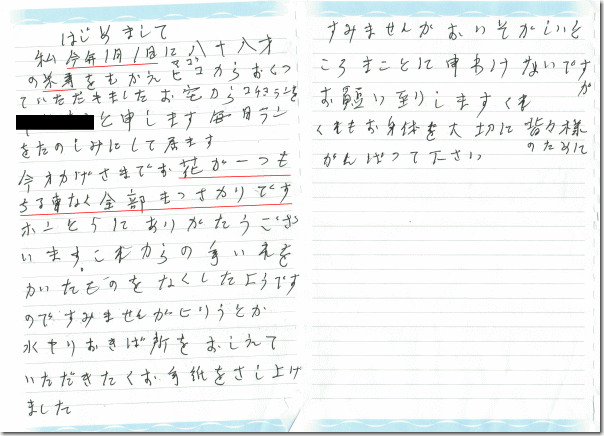 はじめまして
私 今年1月1日に八十八才
の米寿をむかえ マゴ からおくつ
ていただきましたお宅からコチョウランを
と申します毎日ラン
をたのしみにして居ます
今おかげさまでお花が一つも
ちる事なく全部まつさかりです
ホンとうにありがたうござ
います。これからの手入れを
かいたものをなくしたようです
のですみませんがヒリうとか
水やりおきば所をおしえて
いただきたくお手紙をさし上げ
ました
すみませんがおいそがしいと
ころまことに申わけないですが
お願い致しますくれ
くれもお身体を大切に皆々様
のために
がんばつて下さい